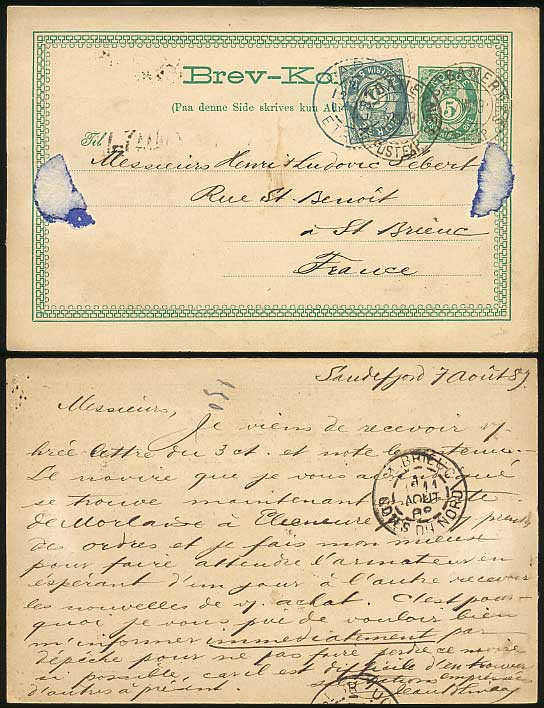 Brev-Ko
(Paa denne Side skrives kun Ad
Til
Messieurs Henri & Ludovic Sebert
Rue St. Benoît
à St Brieuc
France
5
Sandefjord 7 Août 89
Messieurs,
Je viens de recevoir v/
lettre du 3 ct. et note le contenu.
Le navire que je vous a
se trouve maintenant
de Morlaix à Elseneure
des ordres et je fais mon mieux
pour faire attendre l'armateur en
espérant d'un jour à l'autre recevoir
les nouvelles de v/ achat. C'est pour-
quoi je vous prie de vouloir bien
m'informer immédiatement par
dépêche pour ne pas faire perdre ce navire
si possible, car il est difficile d'en trouver
d'autres à présent. salutations empressées
ST BRIEUC
11
AOUT
CÔTES DU NORD